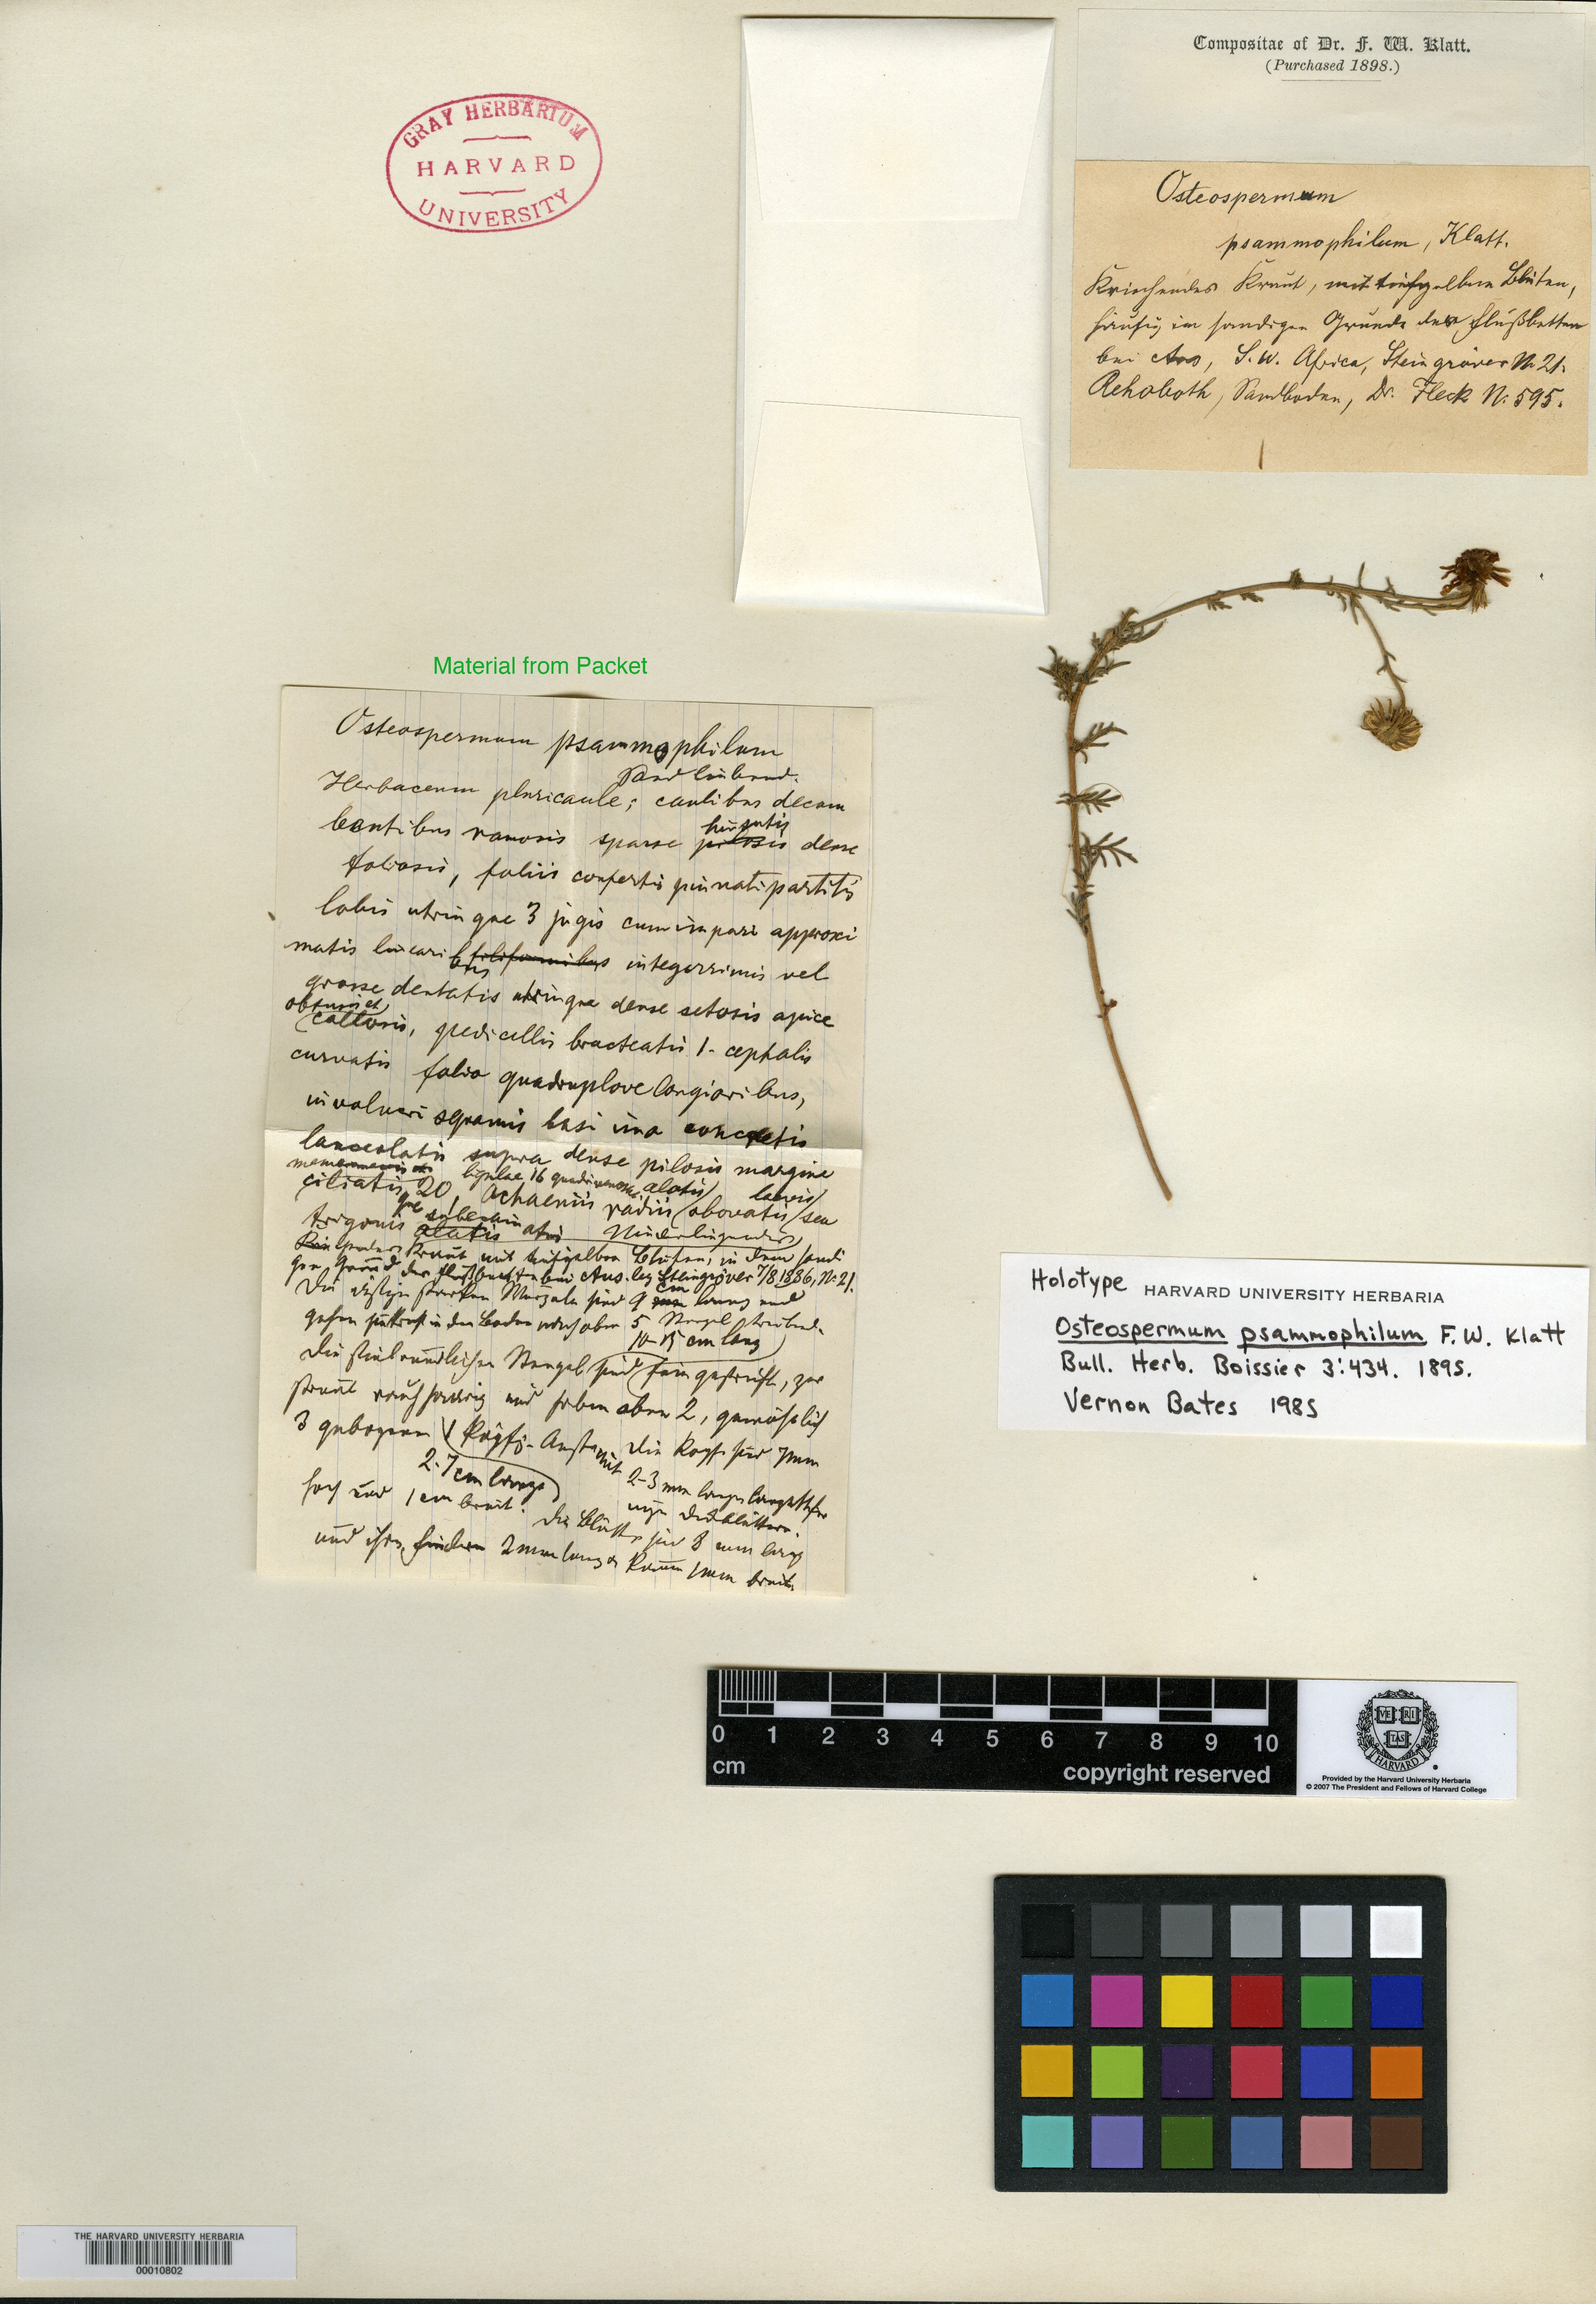 GRAY HERBARIUM
HARVARD
UNIVERSITY
Compositae of Dr. F. W. Klatt.
(Purchased 1898.)
Osteospermum
psammophilum, Klatt.
Kriechendes Kraut, mit tiefgelben Blüten,
häufig im sandigen Grunde der Flußbetten
bei Aus, S.W. Africa, Steingröver N. 21.
Rehoboth, Sandboden, Dr. Fleck N. 595.
Material from Packet
Osteospermum psammophilum
Sandliebend.
Herbaceum pluricaule; caulibus decum
bentibus ramosis sparse pilosis hirsutis dense
foliosis, foliis confertis pinnatipartitis
lobis utrinque 3 jugis cum impari approxi
matis linearibus filiformibus integerrimis vel
grosse dentatis utrinque dense setosis apice
obtusis et callosis, pedicellis bracteatis 1-cephalis
curvatis folio quadruplove longioribus,
involucri squamis basi ima concretis
lanceolatis supra dense pilosis margine
ciliatis 20, ligulae 16 quadrinervosae
achaeniis radii obovatis alatis laevis seu
trigonis alatis
Kraut mit tiefgelben Blüten, in dem sandi
gen Grund der Flußbetten bei Aus. leg. Steingröver 7/8 1886, N. 21.
Die ästigen starken Wurzeln sind 9 cm lang und
gehen in den Boden oben 5 Stengel treibend.
10-15 cm lang
Die Stengel sind fein gestreift, zer
streut und oben 2, gewöhnlich
3 gebogene 1 Köpfe. Die Köpfe sind 7mm
2-7 cm lange
hoch und 1 cm breit. mit 2-3 mm langen
Deckblättern.
Die Blätter sind 8 mm lang
und ihre 2mm lang u. kaum 1mm breit.
Holotype HARVARD UNIVERSITY HERBARIA
Osteospermum psammophilum F. W. Klatt
Bull. Herb. Boissier 3:434. 1895.
Vernon Bates 1985
0 1 2 3 4 5 6 7 8 9 10
cm copyright reserved
VE RI TAS
HARVARD
Provided by the Harvard University Herbaria
© 2007 The President and Fellows of Harvard College
THE HARVARD UNIVERSITY HERBARIA
00010802